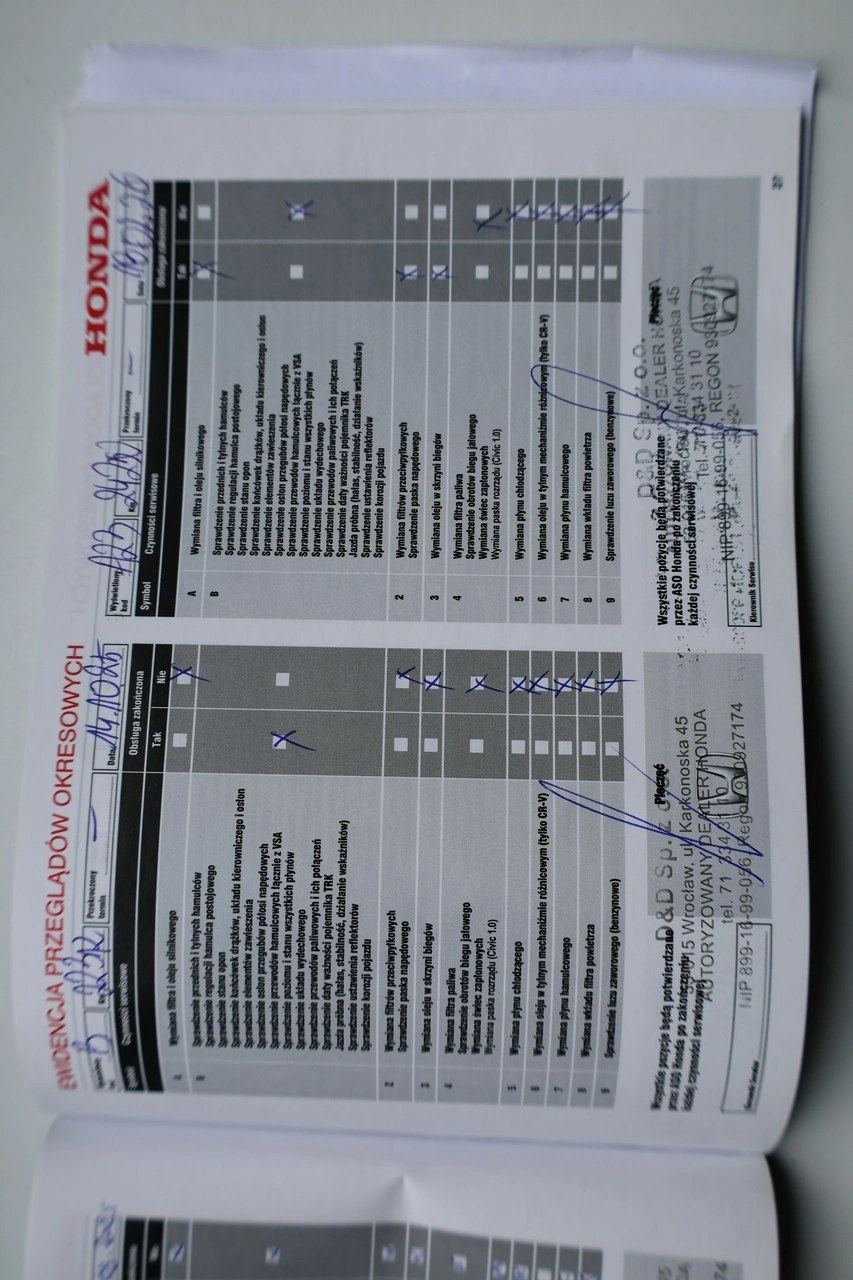 EWIDENCJA PRZEGLĄDÓW OKRESOWYCH
HONDA
B
Przekroczony termin
—
Data
14.10.25
Symbol
Czynności serwisowe
Obsługa zakończona
Tak
Nie
A
Wymiana filtra i oleju silnikowego
B
Sprawdzenie przednich i tylnych hamulców
Sprawdzenie regulacji hamulca postojowego
Sprawdzenie stanu opon
Sprawdzenie końcówek drążków, układu kierowniczego i osłon
Sprawdzenie elementów zawieszenia
Sprawdzenie osłon przegubów półosi napędowych
Sprawdzenie przewodów hamulcowych łącznie z VSA
Sprawdzenie poziomu i stanu wszystkich płynów
Sprawdzenie układu wydechowego
Sprawdzenie przewodów paliwowych i ich połączeń
Sprawdzenie daty ważności pojemnika TRK
Jazda próbna (hałas, stabilność, działanie wskaźników)
Sprawdzenie ustawienia reflektorów
Sprawdzenie korozji pojazdu
2
Wymiana filtrów przeciwpyłkowych
Sprawdzenie paska napędowego
3
Wymiana oleju w skrzyni biegów
4
Wymiana filtra paliwa
Sprawdzenie obrotów biegu jałowego
Wymiana świec zapłonowych
Wymiana paska rozrządu (Civic 1.0)
5
Wymiana płynu chłodzącego
6
Wymiana oleju w tylnym mechaniźmie różnicowym (tylko CR-V)
7
Wymiana płynu hamulcowego
8
Wymiana wkładu filtra powietrza
9
Sprawdzenie luzu zaworowego (benzynowe)
Wszystkie pozycje będą potwierdzane
przez ASO Honda po zakończeniu
każdej czynności serwisowej
Pieczęć
D&D Sp. z o.o.
Wrocław, ul. Karkonoska 45
AUTORYZOWANY DEALER HONDA
tel. 71 334 31 10
NIP 899-16-99-056, Regon 930927174
Kierownik Serwisu
Wyświetlony kod
A23
Przekroczony termin
—
Data
Symbol
Czynności serwisowe
Obsługa zakończona
Tak
Nie
A
Wymiana filtra i oleju silnikowego
B
Sprawdzenie przednich i tylnych hamulców
Sprawdzenie regulacji hamulca postojowego
Sprawdzenie stanu opon
Sprawdzenie końcówek drążków, układu kierowniczego i osłon
Sprawdzenie elementów zawieszenia
Sprawdzenie osłon przegubów półosi napędowych
Sprawdzenie przewodów hamulcowych łącznie z VSA
Sprawdzenie poziomu i stanu wszystkich płynów
Sprawdzenie układu wydechowego
Sprawdzenie przewodów paliwowych i ich połączeń
Sprawdzenie daty ważności pojemnika TRK
Jazda próbna (hałas, stabilność, działanie wskaźników)
Sprawdzenie ustawienia reflektorów
Sprawdzenie korozji pojazdu
2
Wymiana filtrów przeciwpyłkowych
Sprawdzenie paska napędowego
3
Wymiana oleju w skrzyni biegów
4
Wymiana filtra paliwa
Sprawdzenie obrotów biegu jałowego
Wymiana świec zapłonowych
Wymiana paska rozrządu (Civic 1.0)
5
Wymiana płynu chłodzącego
6
Wymiana oleju w tylnym mechaniźmie różnicowym (tylko CR-V)
7
Wymiana płynu hamulcowego
8
Wymiana wkładu filtra powietrza
9
Sprawdzenie luzu zaworowego (benzynowe)
Wszystkie pozycje będą potwierdzane
przez ASO Honda po zakończeniu
każdej czynności serwisowej
Pieczęć
D&D Sp. z o.o.
DEALER HONDA
ul. Karkonoska 45
Tel. 71 334 31 10
NIP 899-16-99-056, REGON 930927174
Kierownik Serwisu